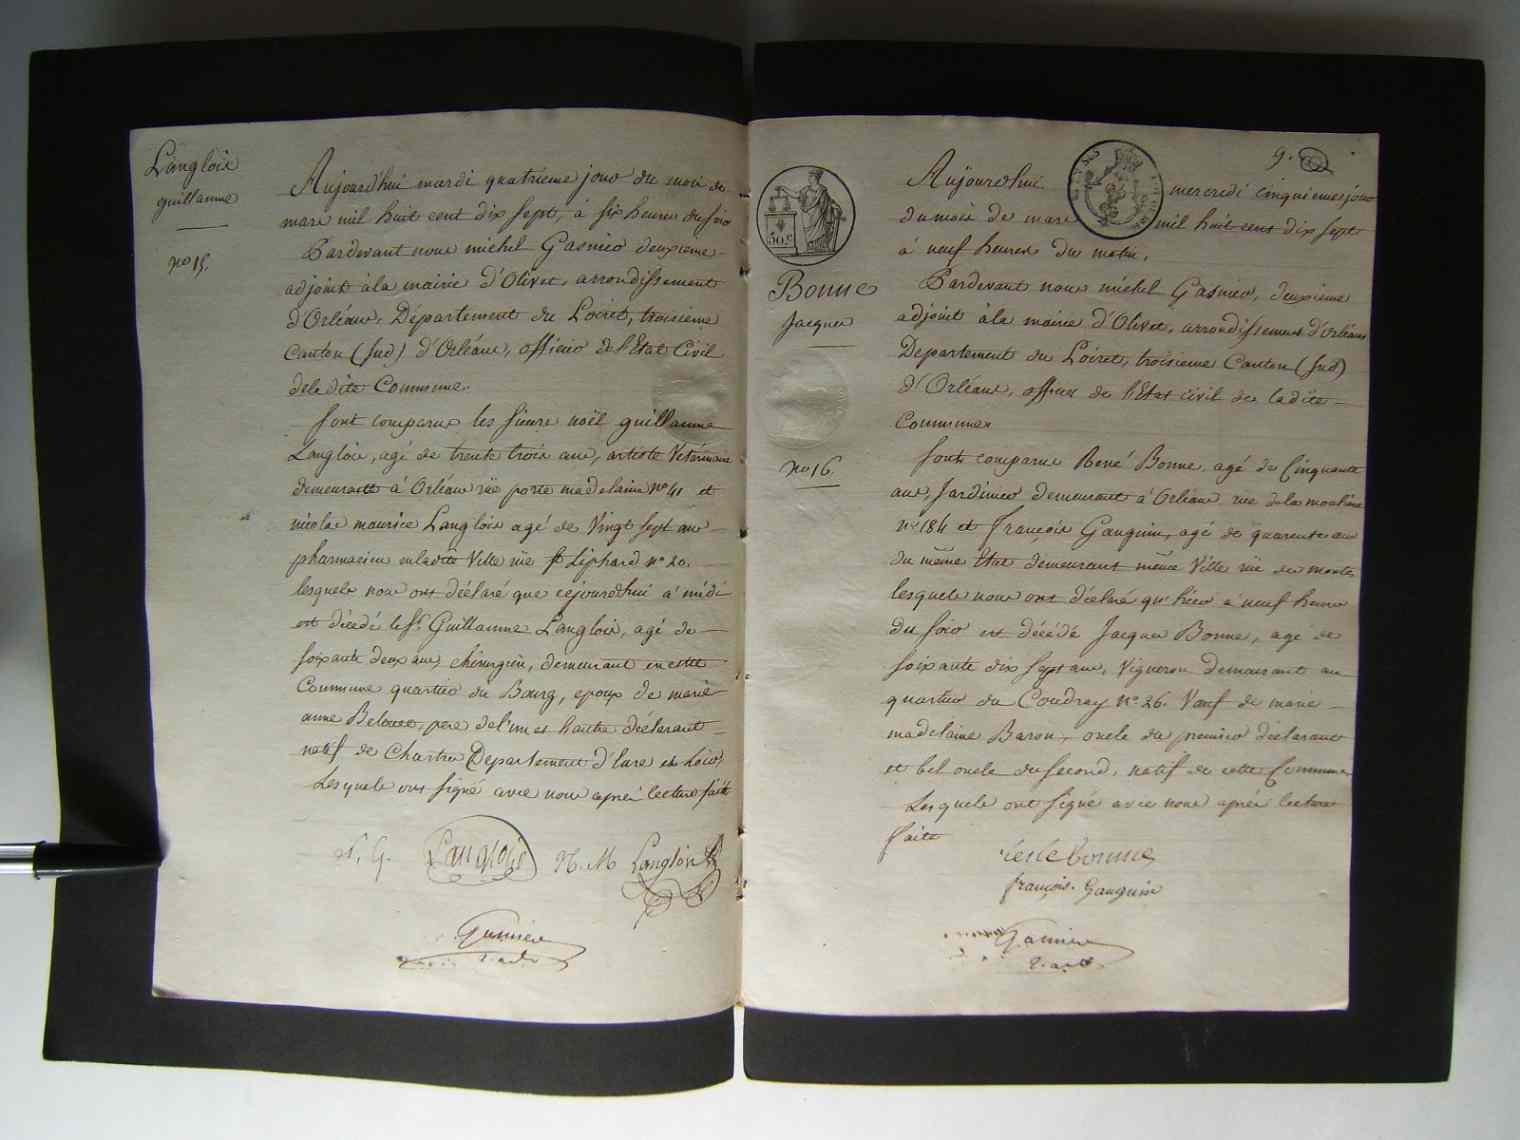 Langlois
guillaume
no 15.
Aujourdhui mardi quatrieme jour du mois de
mars mil huit cent dix sept, à six heures du soir
Pardevant nous michel Gasnier deuxieme
adjoint à la mairie d'Olivet, arrondissement
d'Orléans, Département du Loiret, troisieme
Canton (Sud) d'Orléans, officier de l'Etat Civil
de la dite Commune.
Sont comparus les sieurs noël guillaume
Langlois, agé de trente trois ans, artiste Vétérinaire
demeurant à Orléans rüe porte madelaine no 41 et
nicolas maurice Langlois agé de Vingt sept ans
pharmacien en ladite Ville rüe St Liphard no 20.
lesquels nous ont déclaré que cejourdhui à midi
est décédé le Sr. Guillaume Langlois, agé de
soixante deux ans, chirurgien, demeurant en cette
Commune quartier du Bourg, epoux de marie
anne Belouet, pere de l'un et l'autre déclarant
natif de Chartres Département d'Eure et Loir,
Lesquels ont signé avec nous après lecture faite
N. G. Langlois N. M Langlois
Gasnier
2. adt
9.
50 c
Bonne
Jacques
no 16
Aujourdhui mercredi cinquieme jour
du mois de mars mil huit cent dix sept
à neuf heures du matin,
Pardevant nous michel Gasnier, deuxieme
adjoint à la mairie d'Olivet, arrondissement d'Orléans
Departement du Loiret, troisieme Canton (Sud)
d'Orléans, officier de l'Etat civil de ladite
Commune
Sont comparus René Bonne, agé de Cinquante
ans, Jardinier demeurant à Orléans rüe de la mouline
no 184 et François Gauguin, agé de quarente ans
du même Etat demeurant même Ville rüe des montés
lesquels nous ont déclaré qu'hier à neuf heures
du soir est décédé Jacques Bonne, agé de
soixante dix sept ans, Vigneron demeurant au
quartier du Coudray No. 26. Veuf de marie
madelaine Baron, oncle du premier déclarant
et bel oncle du second, natif de cette Commune
Lesquels ont signé avec nous après lecture
faite
rene bonne
françois. Gauguin
Gasnier
2. adt